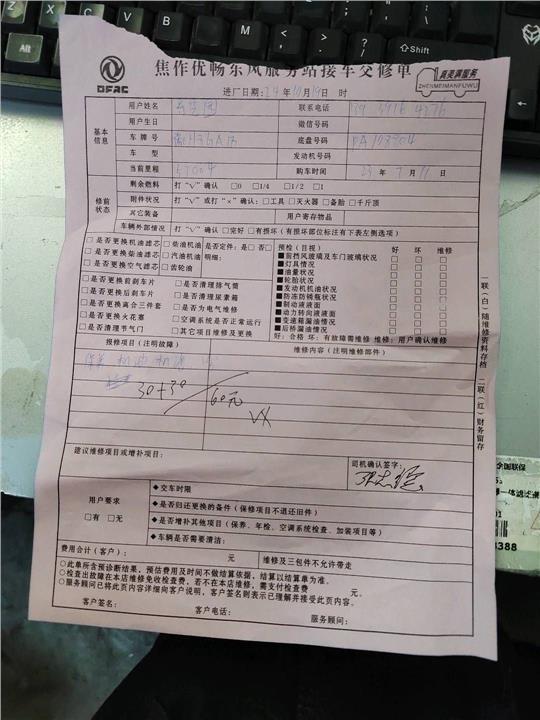 焦作优畅东风服务站接车交修单
DFAC
真美满服务
ZHENMEIMANFUWU
进厂日期：24年10月19日 时
基本信息
用户姓名
联系电话
用户生日
微信号码
车牌号
底盘号码
车 型
发动机号码
当前里程 57004
购车时间 23年7月11日
修前状态
剩余燃料 打“√”确认 □0 □1/4 □1/2 □1
附件状况 打“√”或打“×”确认：□工具 □灭火器 □备胎 □千斤顶
其它装备
用户寄存物品
车辆外部情况 打“√”确认 □完好 □有损坏（有损坏部位标注有下表左侧选项）
□是否更换机油滤芯 □柴油机油 是否定件：是□ 否□
□是否更换柴油滤芯 □汽油机油 明细：
□是否更换空气滤芯 □齿轮油
□是否更换前刹车片 □是否清理排气筒
□是否更换后刹车片 □是否清理尿素箱
□是否更换离合三件套 □是否为电气维修
□是否更换火花塞 □空调系统是否正常运行
□是否清理节气门 □其它项目维修及更换
预检（目视） 好 坏 维修
■前挡风玻璃及车门玻璃状况
■灯具情况
■油量状况
■轮胎状况
■发动机机油状况
■防冻防锈瓶状况
■制动液液面
■动力转向液液面
■变速箱漏油情况
■后桥漏油情况
好：合格 坏：有故障需维修 维修：用户确认维修
报修项目（注明故障）
维修内容（注明维修部件）
保养 机油机滤
30+30
60元
VX
建议维修项目或增补项目：
司机确认签字：
用户要求
□有 □无
◆交车时限
◆是否归还更换的备件（保修项目不退还旧件）
◆是否增补其他项目（保养、年检、空调系统检查、加装项目等）
◆车辆是否需要清洁：
费用合计（客户）： 元
维修及三包件不允许带走
○此单所含预诊断结果，预估费用及时间不做结算依据，结算以结算单为准。
○检查出故障在本店维修免收检查费，若不在本店维修，需支付检查费 元。
○服务顾问已将此页内容详细向客户说明，客户签名则表示已理解并接受此页内容。
客户签名：
客户电话：
服务顾问：
一联（白）随维修资料存档
二联（红）财务留存
全国联保
4388
Alt
Shift